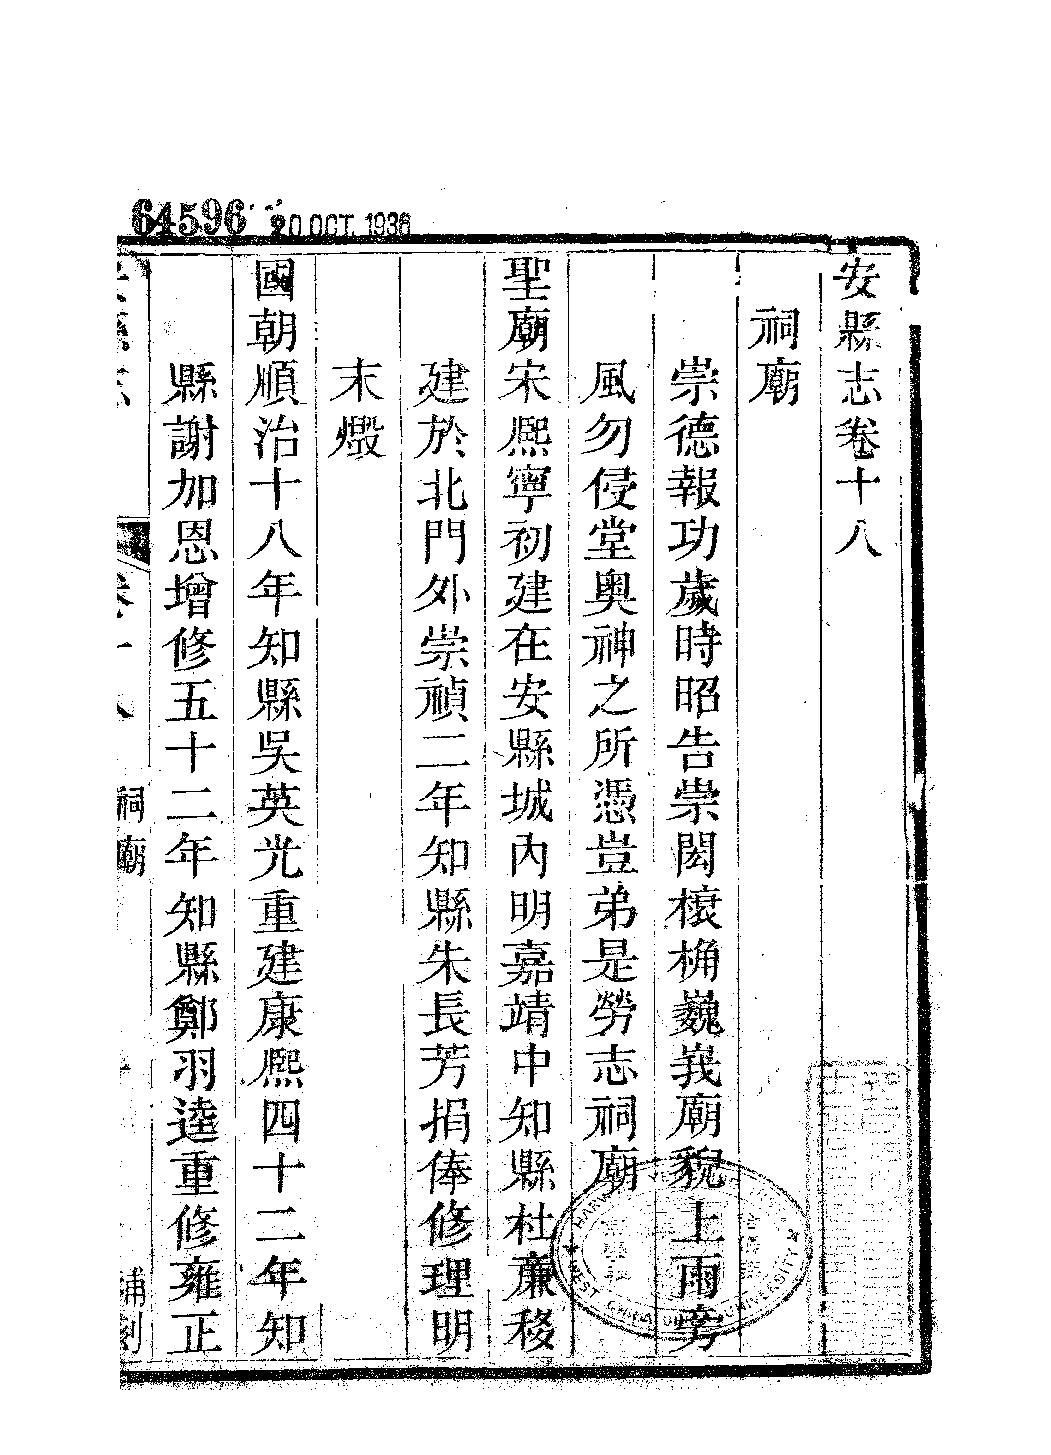 64596
20 OCT. 1936
安縣志卷十八
祠廟
崇德報功歲時昭告崇閎榱桷巍峩廟貌上雨旁
風勿侵堂奧神之所憑豈弟是勞志祠廟
聖廟宋熈寧初建在安縣城內明嘉靖中知縣杜㢘移
建於北門外崇禎二年知縣朱長芳捐俸修理明
末燬
國朝順治十八年知縣吳英光重建康熈四十二年知
縣謝加恩增修五十二年知縣鄭羽逵重修雍正
卷十八
祠廟
補刻